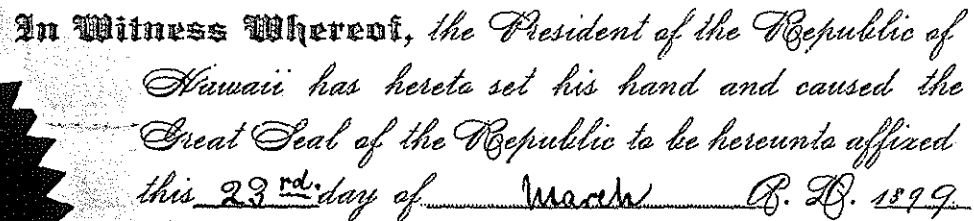 In Witness Whereof, the President of the Republic of
Hawaii has hereto set his hand and caused the
Great Seal of the Republic to be hereunto affixed
this 23rd. day of March A. D. 1899